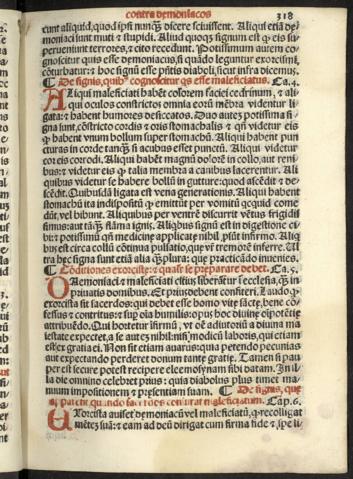 contra demoniacos
318
runt aliquid, quod ipsi nunq̃ discere sciuissent. Aliqui etiã de
moniaci sunt muti ⁊ stupidi. Aliud quoqꝫ signum est qꝫ eis su
perueniunt terrores, ⁊ cito recedunt. Potissimum autem co-
gnoscitur quis esse demoniacus, si quãdo leguntur exorcismi,
cõturbatur: ⁊ hoc signũ esse põtis diaboli, sicut infra dicemus.
¶ De signis, quibꝰ cognoscitur qs esse maleficiatus. Ca.4.
ALiqui maleficiati habẽt colorem faciei cedrinum, ⁊ ali-
qui oculos constrictos omnia eorũ mẽbra videntur li
gata: ⁊ habent humores desiccatos. Duo autẽ potissima si-
gna sunt, cõstrictio cordis ⁊ oris stomachalis ⁊ qñ videtur eis
ꝙ habent vnum bollum super stomachũ. Aliqui habent pun
cturas in corde tanq̃ȝ si acubus esset punctũ. Aliqui videtur
cor eis corrodi. Aliqui habẽt magnũ dolorẽ in collo, aut reni
bus: ⁊ videtur eis ꝙ talia membra a canibus lacerentur. Ali
quibus videtur se habere bollũ in gutture: quod ascẽdit ⁊ de
scẽdit. Quibusdã ligata est vena generationis. Aliqui habent
stomachũ ita indispositũ ꝙ emittit per vomitũ qcquid come
dũt, vel bibunt. Aliquibus per ventrẽ discurrit vẽtus frigidis
simus: aut tãq̃ȝ flãma ignis. Aliqbus signũ est in digestione ci
bi: ⁊ potissimũ qñ medicine applicate nihil ꝓsũt infirmo. Aliq
bus est circa collũ cõtinua pulsatio, que vr̃ tremorẽ inferre. Ul
tra hec signa sunt etiã alia q̃plura: que practicãdo inuenies.
¶ Cõditiones exorciste: ⁊ qualr̃ se preparare debet. Ca.5.
DAemoniaci ⁊ maleficiati citius liberãtur ĩ ecclesia, q̃ȝ in
priuatis domibus. Et prius debent confiteri. Laudo qꝫ
exorcista sit sacerdos: qui debet esse homo vite sacte, bene con-
fessus ⁊ contritus: ⁊ sup oĩa humilis: opus hoc diuine oĩpotẽtie
attribuẽdo. Qui hortetur ifirmũ, vt oẽ adiutoriũ a diuina ma
iestate expectet, a se aut eȝ nihil: nisi modicũ laboris, qui etiam
est ex gratia ei. Non sit etiam auarus: qua petendo pecunias
aut expectando perderet donum tante gratie. Tamen si pau
per est secure potest recipere eleemosynam sibi datam. In il
la die omnino celebret prius: quia diabolus plus timet ma
nuum impositionem ⁊ presentiam suam. ¶ De signis, que
Cap.6.
EXorcista auiset demoniacũ vel maleficiatũ, ꝙ recolligat
mẽtez suã: ⁊ eam ad deũ dirigat cum firma fide ⁊ spe li